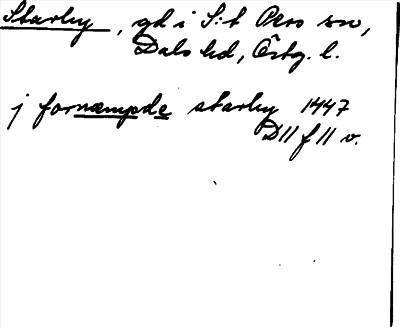 Starby, gd i S:t Pers sn,
Dals hd, Östg. l.
j fornæmpde starby 1447
D11 f 11 v.